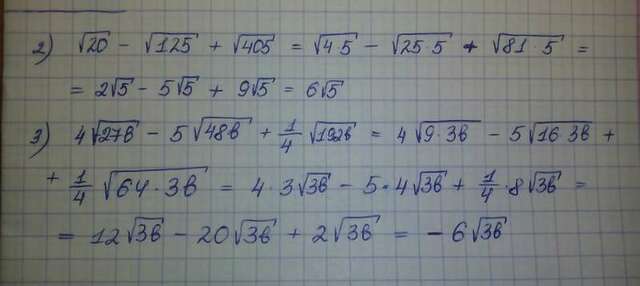 2) √20 - √125 + √405 = √4·5 - √25·5 + √81·5 =
= 2√5 - 5√5 + 9√5 = 6√5
3) 4√27в - 5√48в + 1/4 √192в = 4√9·3в - 5√16·3в +
+ 1/4 √64·3в = 4·3√3в - 5·4√3в + 1/4·8√3в =
= 12√3в - 20√3в + 2√3в = - 6√3в